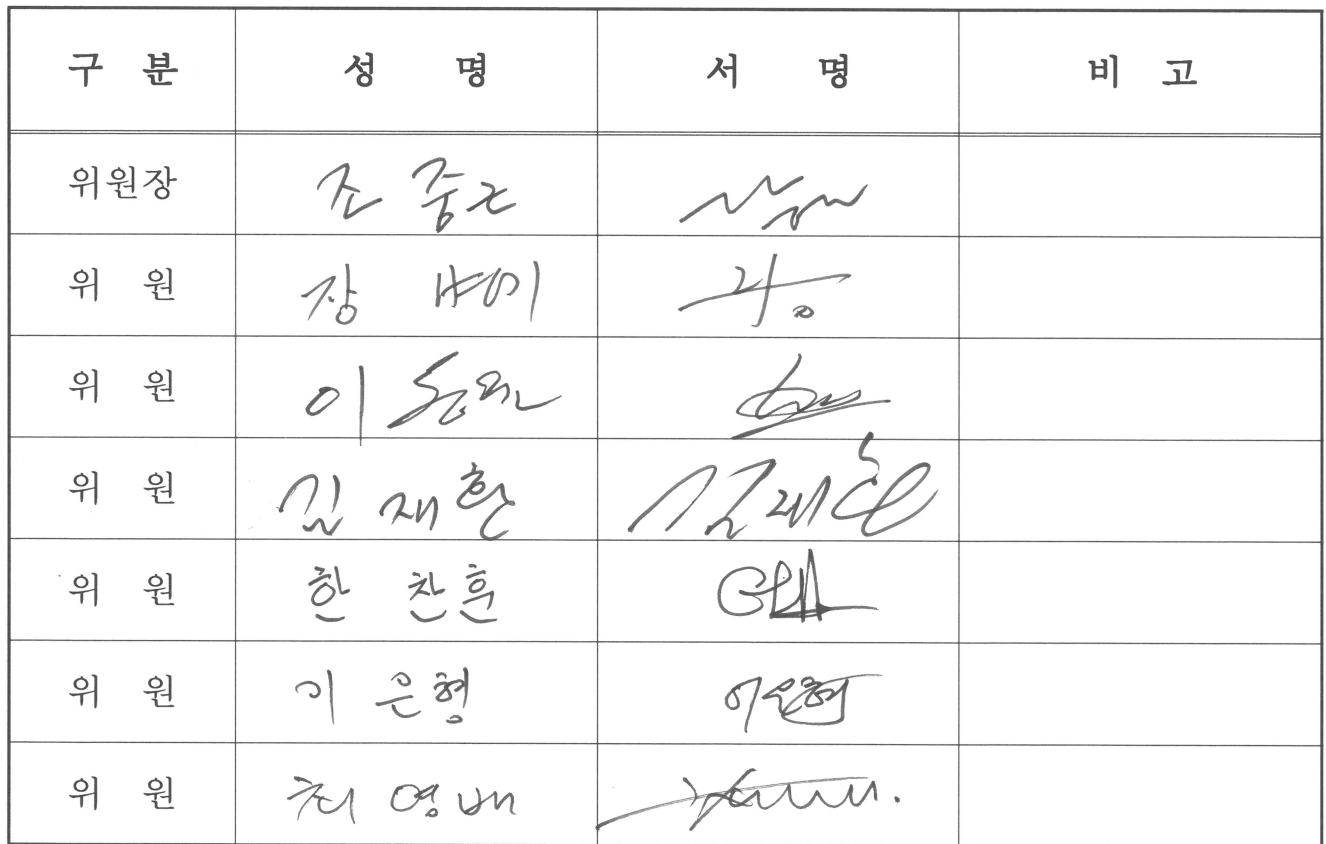 구 분 성 명 서 명 비 고
위원장 조 중근
위 원 장
위 원 이
위 원 김 재환 김재환
위 원 한 찬훈
위 원 이 은형 이은형
위 원 최 영배